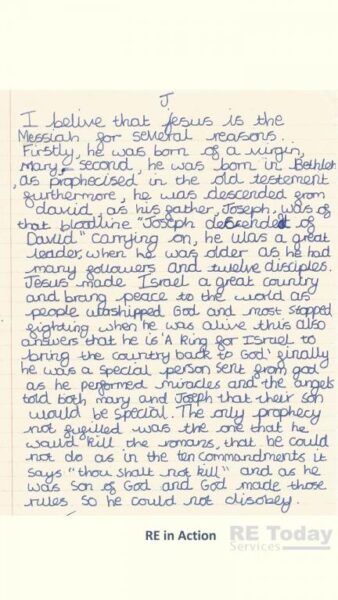 J
I belive that Jesus is the
Messiah for several reasons.
Firstly, he was born of a virgin,
Mary. second, he was born in Bethleh
, as prophecised in the old testement
furthermore, he was descended from
david, as his father, Joseph, was of
that bloodline "Joseph descended of
David" carrying on, he was a great
leader, when he was older as he had
many followers and twelve disciples.
Jesus made Israel a great country
and brang peace to the world as
people worshipped God and most stopped
fighting when he was alive this also
answers that he is 'A King for Israel to
bring the country back to God' finally
he was a special person sent from god
as he performed miracles and the angels
told both mary and Joseph that their son
would be special. The only prophecy
not fugilled was the one that he
would kill the romans, that he could
not do as in the ten commandments it
says "thou shalt not kill" and as he
was son of God and God made those
rules so he could not disobey.
RE in Action
RE Today
Services